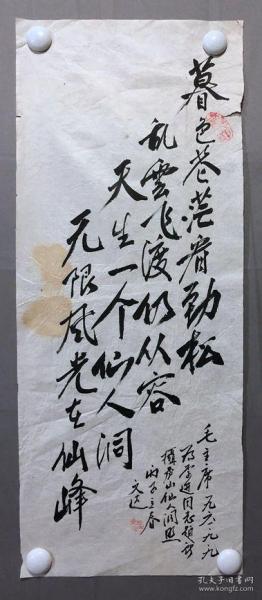 暮色苍茫看劲松
乱雲飞渡仍从容
天生一个仙人洞
无限风光在仙峰
毛主席一九六一·九·九
为李进同志题所
摄庐山仙人洞照
丙子立春
文达
孔夫子旧书网